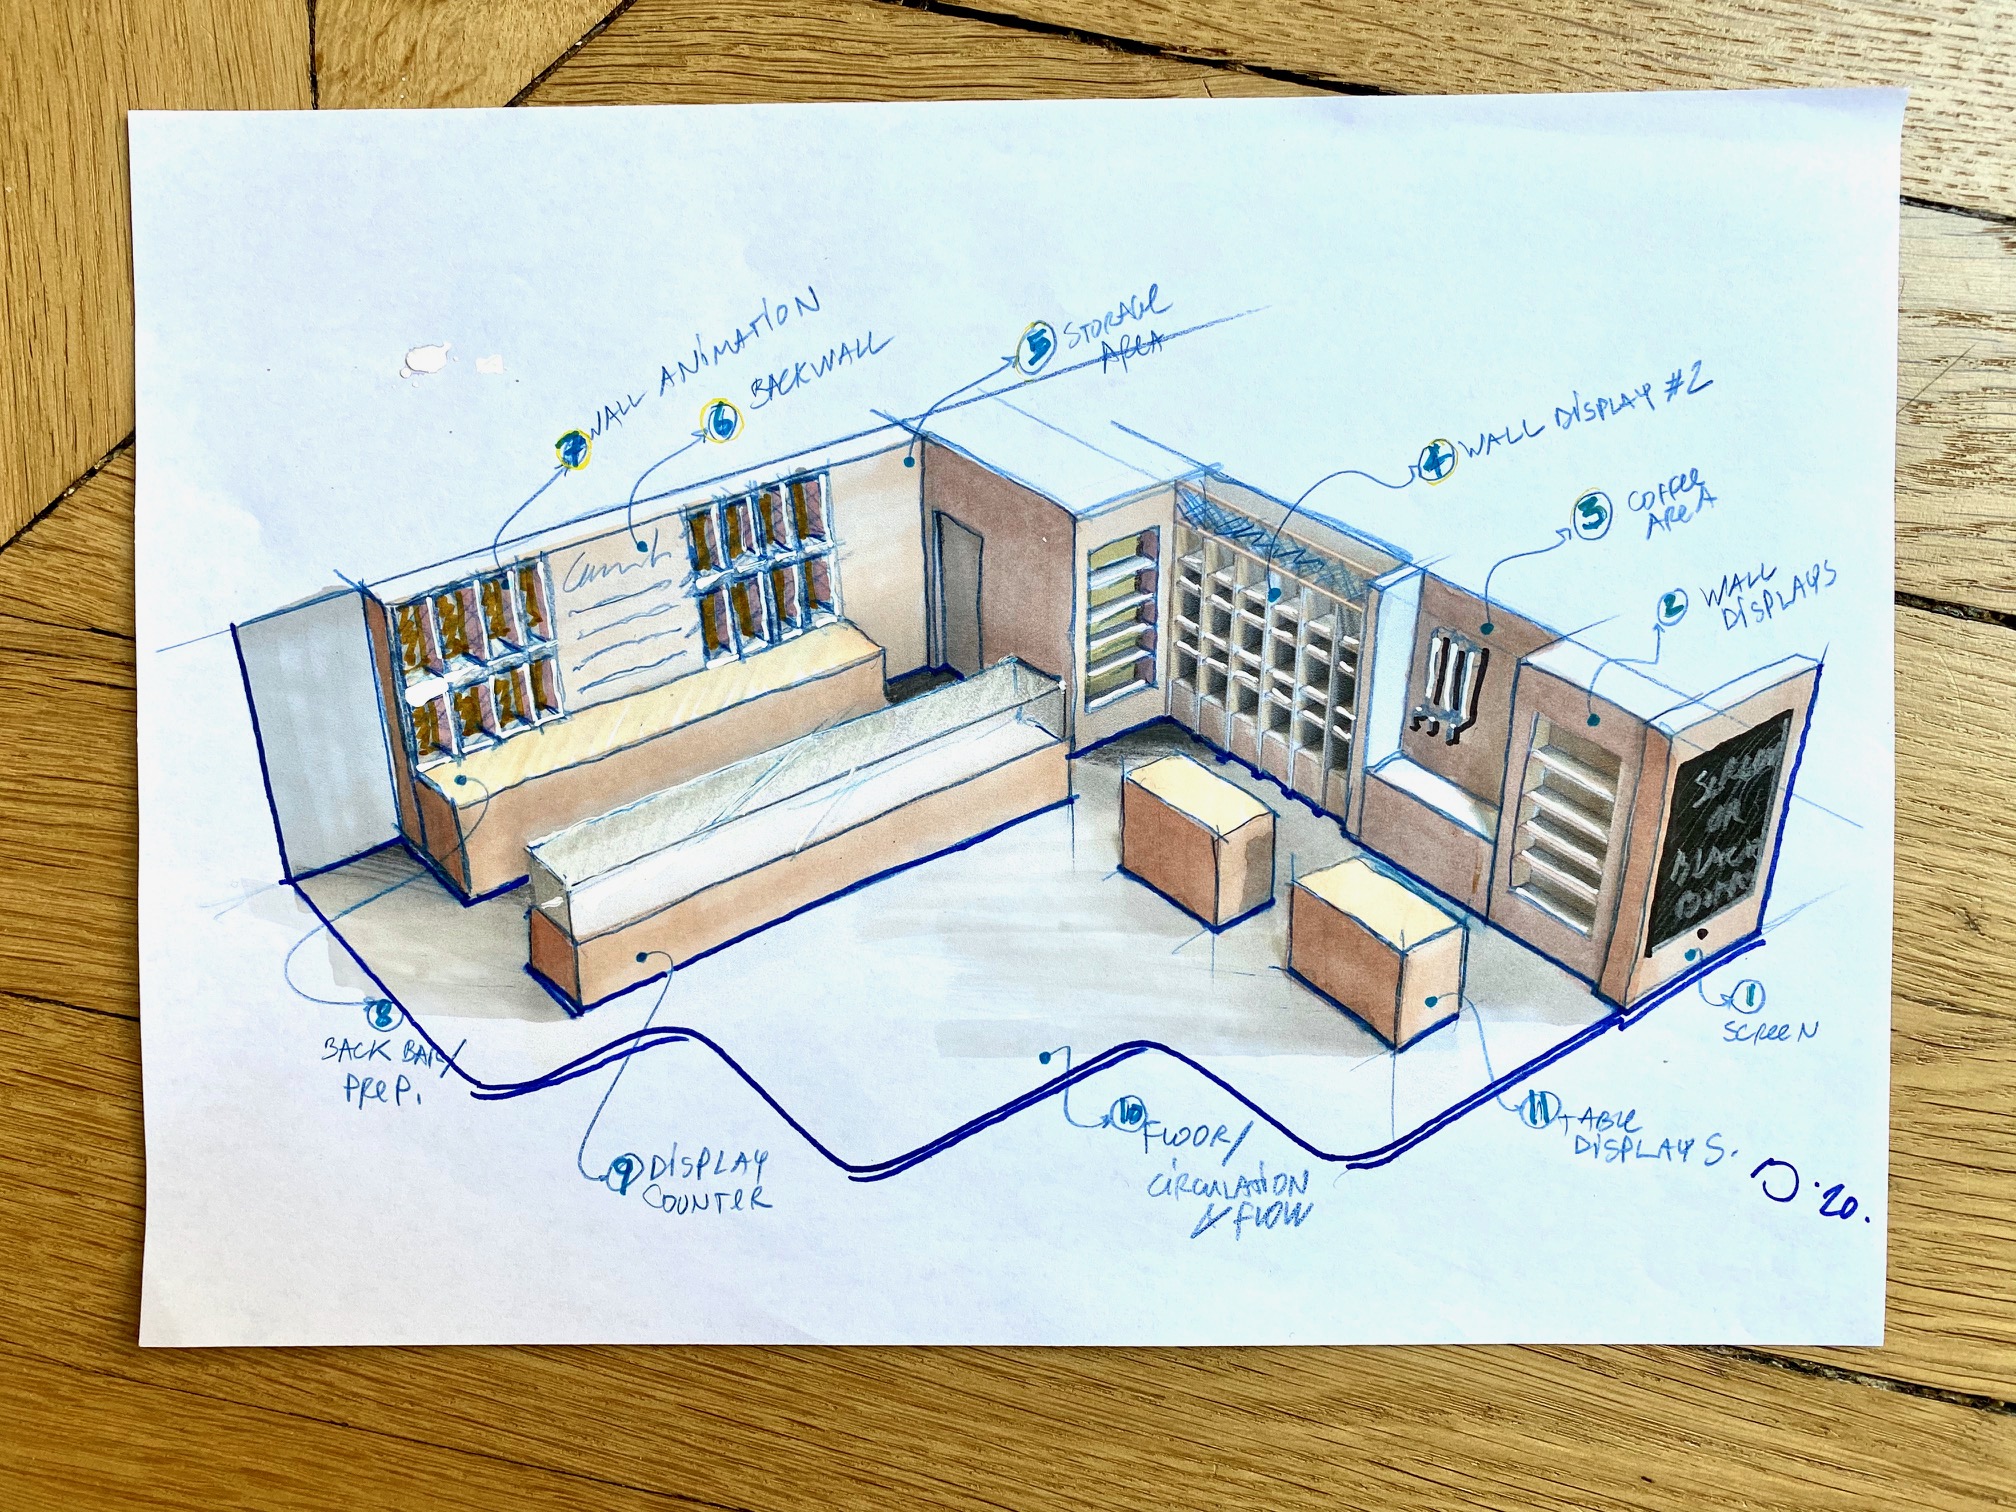 7 WALL ANIMATION
6 BACKWALL
5 STORAGE
AREA
4 WALL DISPLAY #2
3 COFFEE
AREA
2 WALL
DISPLAYS
SCREEN
OR
BLACK
1
SCREEN
8
BACK BAR/
PREP.
9 DISPLAY
COUNTER
10 FLOOR/
CIRCULATION
FLOW
11 TABLE
DISPLAYS.
D.20.